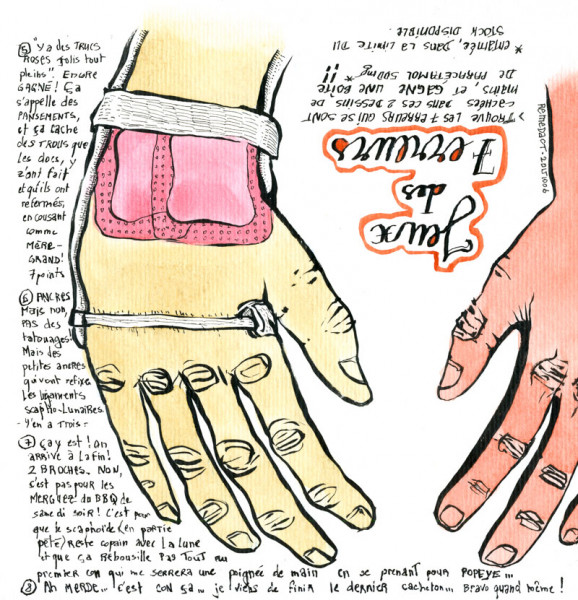 ⑤ "Y a des TRUCS
ROSES jolis tout
pleins". ENCORE
GAGNÉ! ÇA
s'appelle des
PANSEMENTS,
et ça cache
des TROUS que
les docs, y
z'ont fait
et qu'ils ont
refermés,
en cousant
comme
MÈRE-
GRAND!
7 points
⑥ ANCRES
Mais non,
PAS des
tatouages.
Mais des
petites ancres
qui vont refixer
les ligaments
scapho-Lunaires.
- Y'en a TROIS -
⑦ Çay est! on
ARRIVE à la fin!
2 BROCHES. NON,
c'est pas pour les
MERGUEZ du BBQ de
samedi soir! C'est pour
que le scaphoïde (en partie
pété) reste copain avec la lune
et que ça REbousille PAS TOUT au
premier con qui me serrera une poignée de main en se prenant pour POPEYE...
⑧ Ah MERDE... c'est CON ça... je viens de finir le dernier cacheton... Bravo quand même!
Jeux
des
7 erreurs
> TROUVE LES 7 ERREURS QUI SE SONT
cachées dans ces 2 dessins de
mains, et GAGNE UNE BOÎTE
DE PARACÉTAMOL 500mg* !!
* entamée, dans la limite du
STOCK DISPONIBLE.